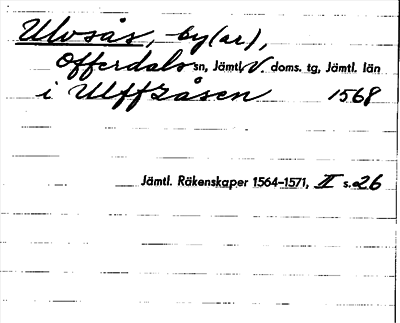 Ulvsås, by(ar),
Offerdals sn, Jämtl. V. doms. tg, Jämtl. län
i Ulffzåsen 1568
Jämtl. Räkenskaper 1564-1571, II s. 26